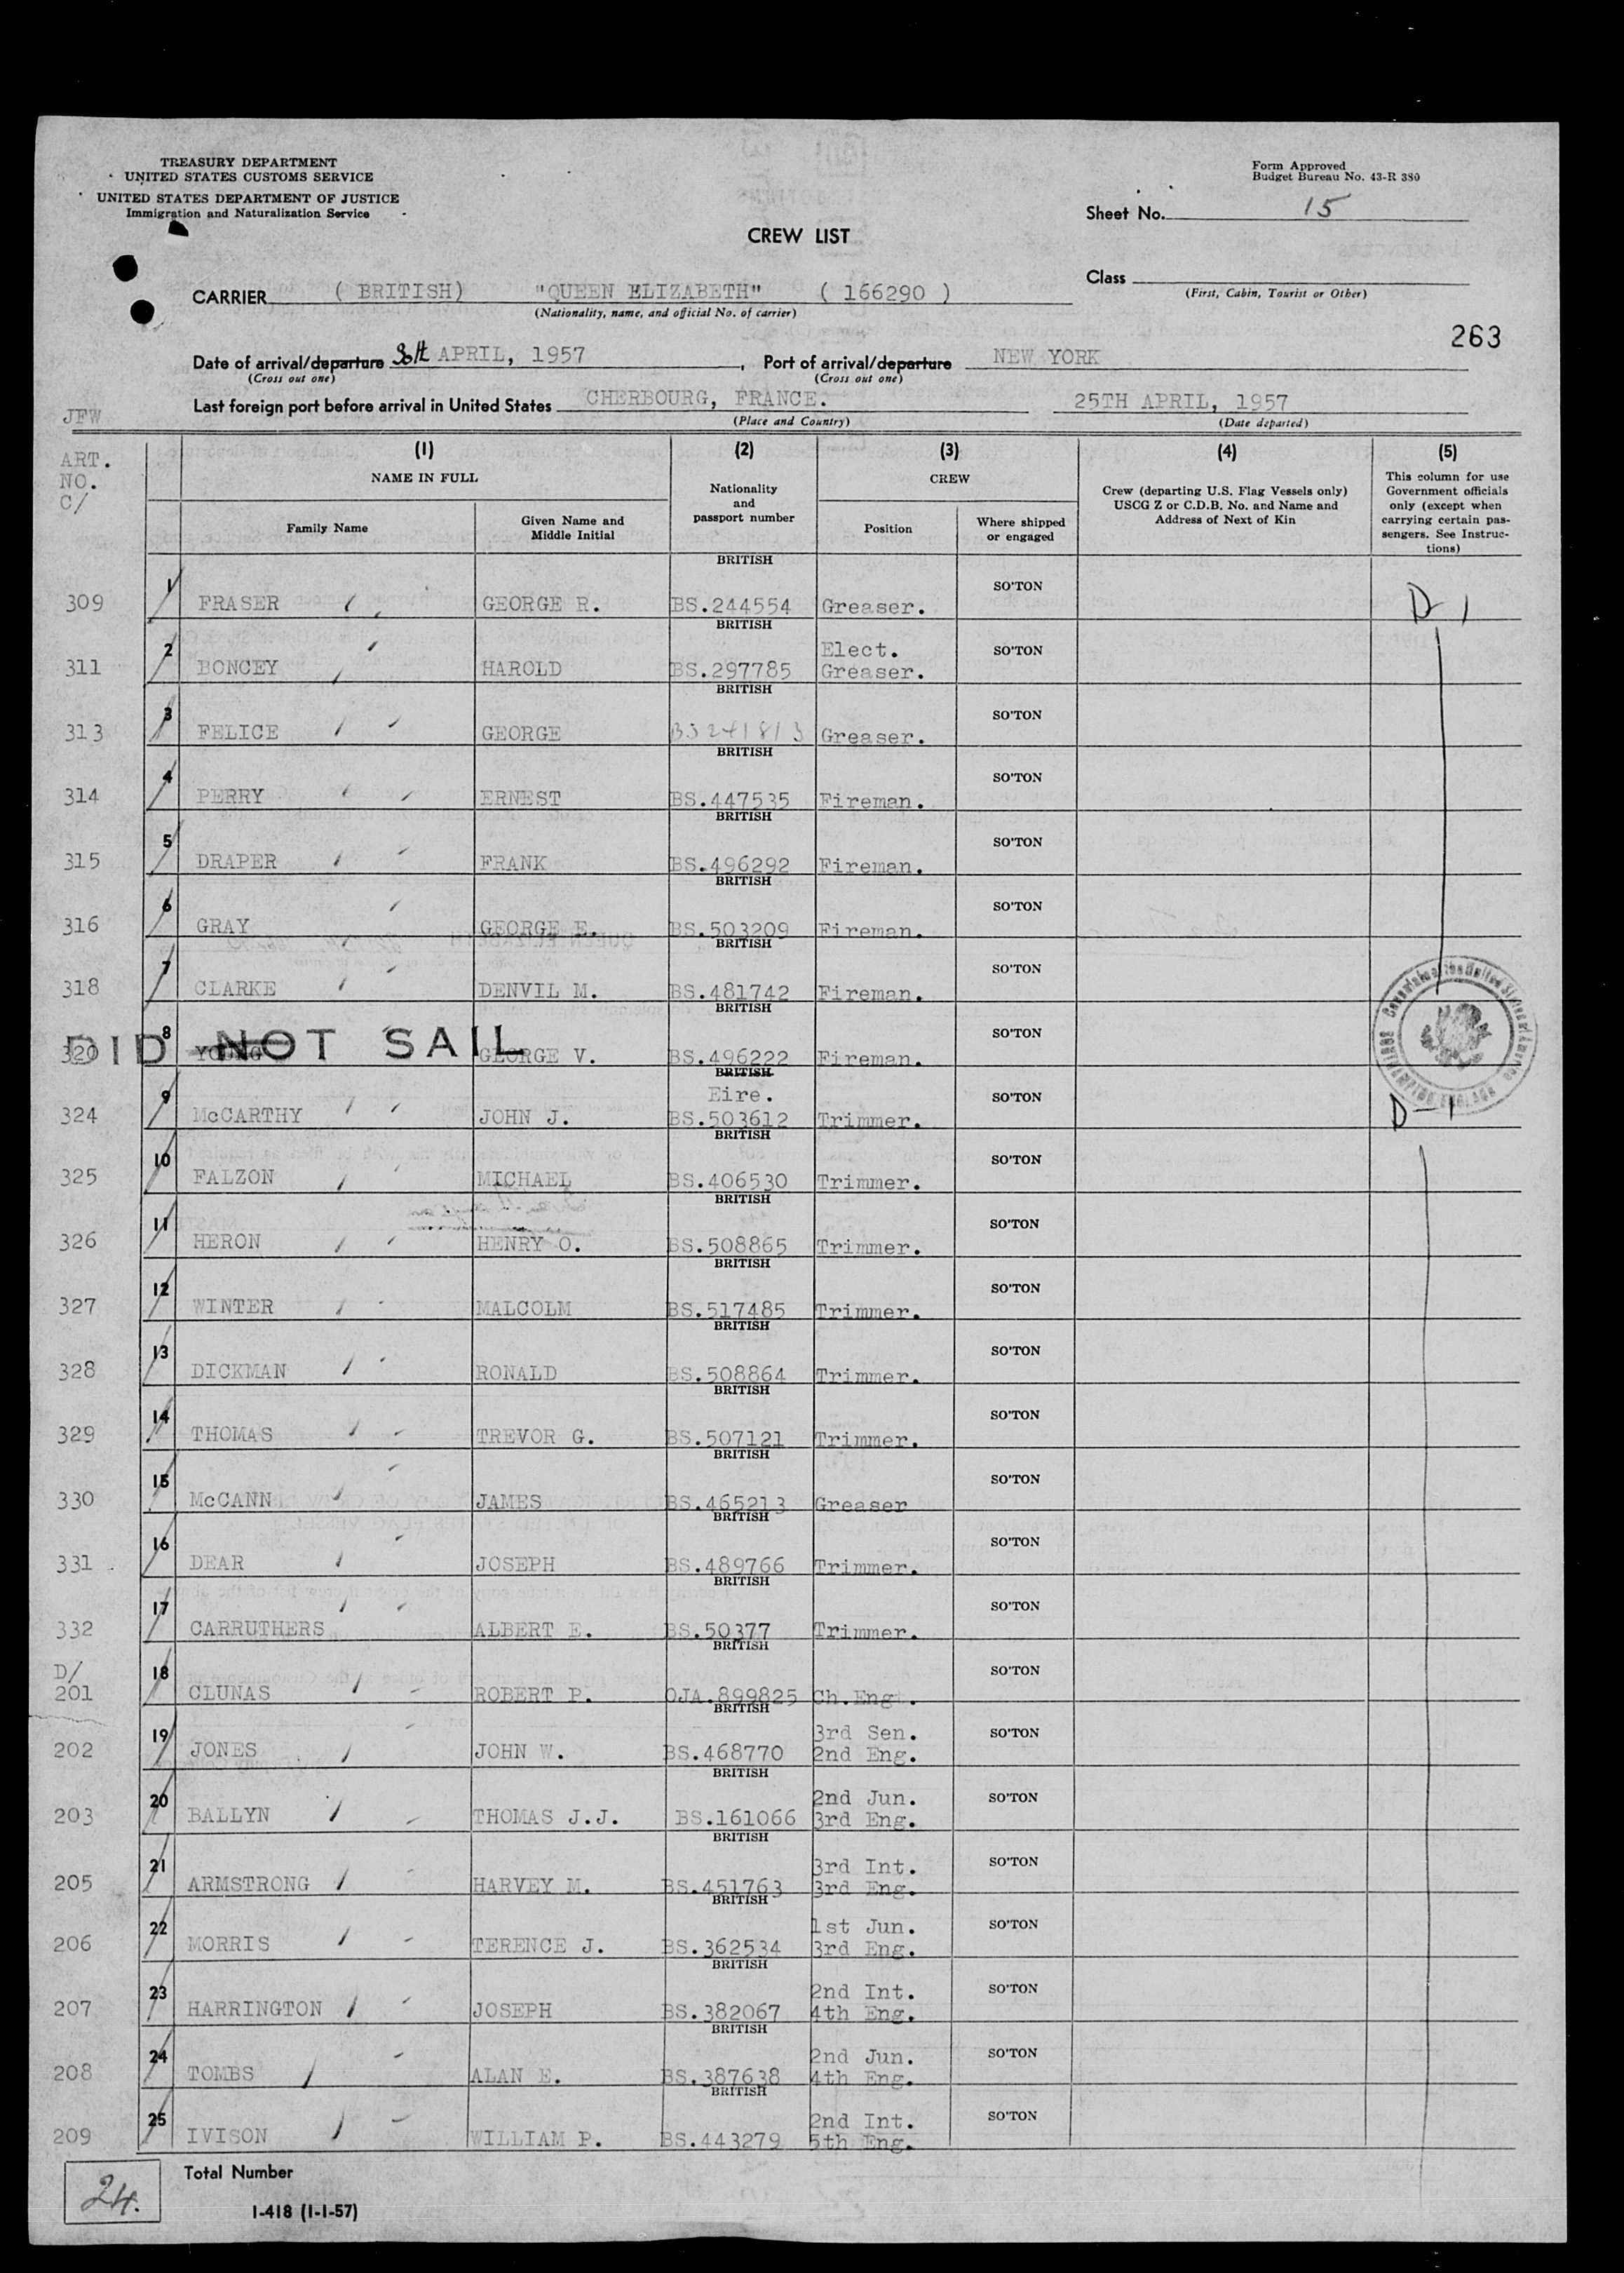 TREASURY DEPARTMENT
UNITED STATES CUSTOMS SERVICE
UNITED STATES DEPARTMENT OF JUSTICE
Immigration and Naturalization Service
Form Approved
Budget Bureau No. 43-R 380
Sheet No. 15
CREW LIST
Class
(First, Cabin, Tourist or Other)
CARRIER ( BRITISH) "QUEEN ELIZABETH" ( 166290 )
(Nationality, name, and official No. of carrier)
263
Date of arrival/departure APRIL, 1957, Port of arrival/departure NEW YORK
(Cross out one) (Cross out one)
Last foreign port before arrival in United States CHERBOURG, FRANCE. 25TH APRIL, 1957
(Place and Country) (Date departed)
JFW
ART. NO. C/
(1) NAME IN FULL
Family Name
Given Name and Middle Initial
(2) Nationality and passport number
(3) CREW
Position
Where shipped or engaged
(4) Crew (departing U.S. Flag Vessels only) USCG Z or C.D.B. No. and Name and Address of Next of Kin
(5) This column for use Government officials only (except when carrying certain passengers. See Instructions)
309 1 FRASER GEORGE R. BRITISH BS.244554 Greaser. SO'TON D-1
311 2 BONCEY HAROLD BRITISH BS.297785 Elect. Greaser. SO'TON
313 3 FELICE GEORGE BRITISH BS241813 Greaser. SO'TON
314 4 PERRY ERNEST BRITISH BS.447535 Fireman. SO'TON
315 5 DRAPER FRANK BRITISH BS.496292 Fireman. SO'TON
316 6 GRAY GEORGE E. BRITISH BS.503209 Fireman. SO'TON
318 7 CLARKE DENVIL M. BRITISH BS.481742 Fireman. SO'TON
320 8 YOUNG GEORGE V. BRITISH BS.496222 Fireman. SO'TON
DID NOT SAIL
324 9 McCARTHY JOHN J. BRITISH Eire. BS.503612 Trimmer. SO'TON D-1
325 10 FALZON MICHAEL BRITISH BS.406530 Trimmer. SO'TON
326 11 HERON HENRY O. BRITISH BS.508865 Trimmer. SO'TON
327 12 WINTER MALCOLM BRITISH BS.517485 Trimmer. SO'TON
328 13 DICKMAN RONALD BRITISH BS.508864 Trimmer. SO'TON
329 14 THOMAS TREVOR G. BRITISH BS.507121 Trimmer. SO'TON
330 15 McCANN JAMES BRITISH BS.465213 Greaser SO'TON
331 16 DEAR JOSEPH BRITISH BS.489766 Trimmer. SO'TON
332 17 CARRUTHERS ALBERT E. BRITISH BS.50377 Trimmer. SO'TON
D/ 201 18 CLUNAS ROBERT P. BRITISH OJA.899825 Ch.Eng. SO'TON
202 19 JONES JOHN W. BRITISH BS.468770 3rd Sen. 2nd Eng. SO'TON
203 20 BALLYN THOMAS J.J. BRITISH BS.161066 2nd Jun. 3rd Eng. SO'TON
205 21 ARMSTRONG HARVEY M. BRITISH BS.451763 3rd Int. 3rd Eng. SO'TON
206 22 MORRIS TERENCE J. BRITISH BS.362534 1st Jun. 3rd Eng. SO'TON
207 23 HARRINGTON JOSEPH BRITISH BS.382067 2nd Int. 4th Eng. SO'TON
208 24 TOMBS ALAN E. BRITISH BS.387638 2nd Jun. 4th Eng. SO'TON
209 25 IVISON WILLIAM P. BRITISH BS.443279 2nd Int. 5th Eng. SO'TON
24. Total Number
I-418 (1-1-57)